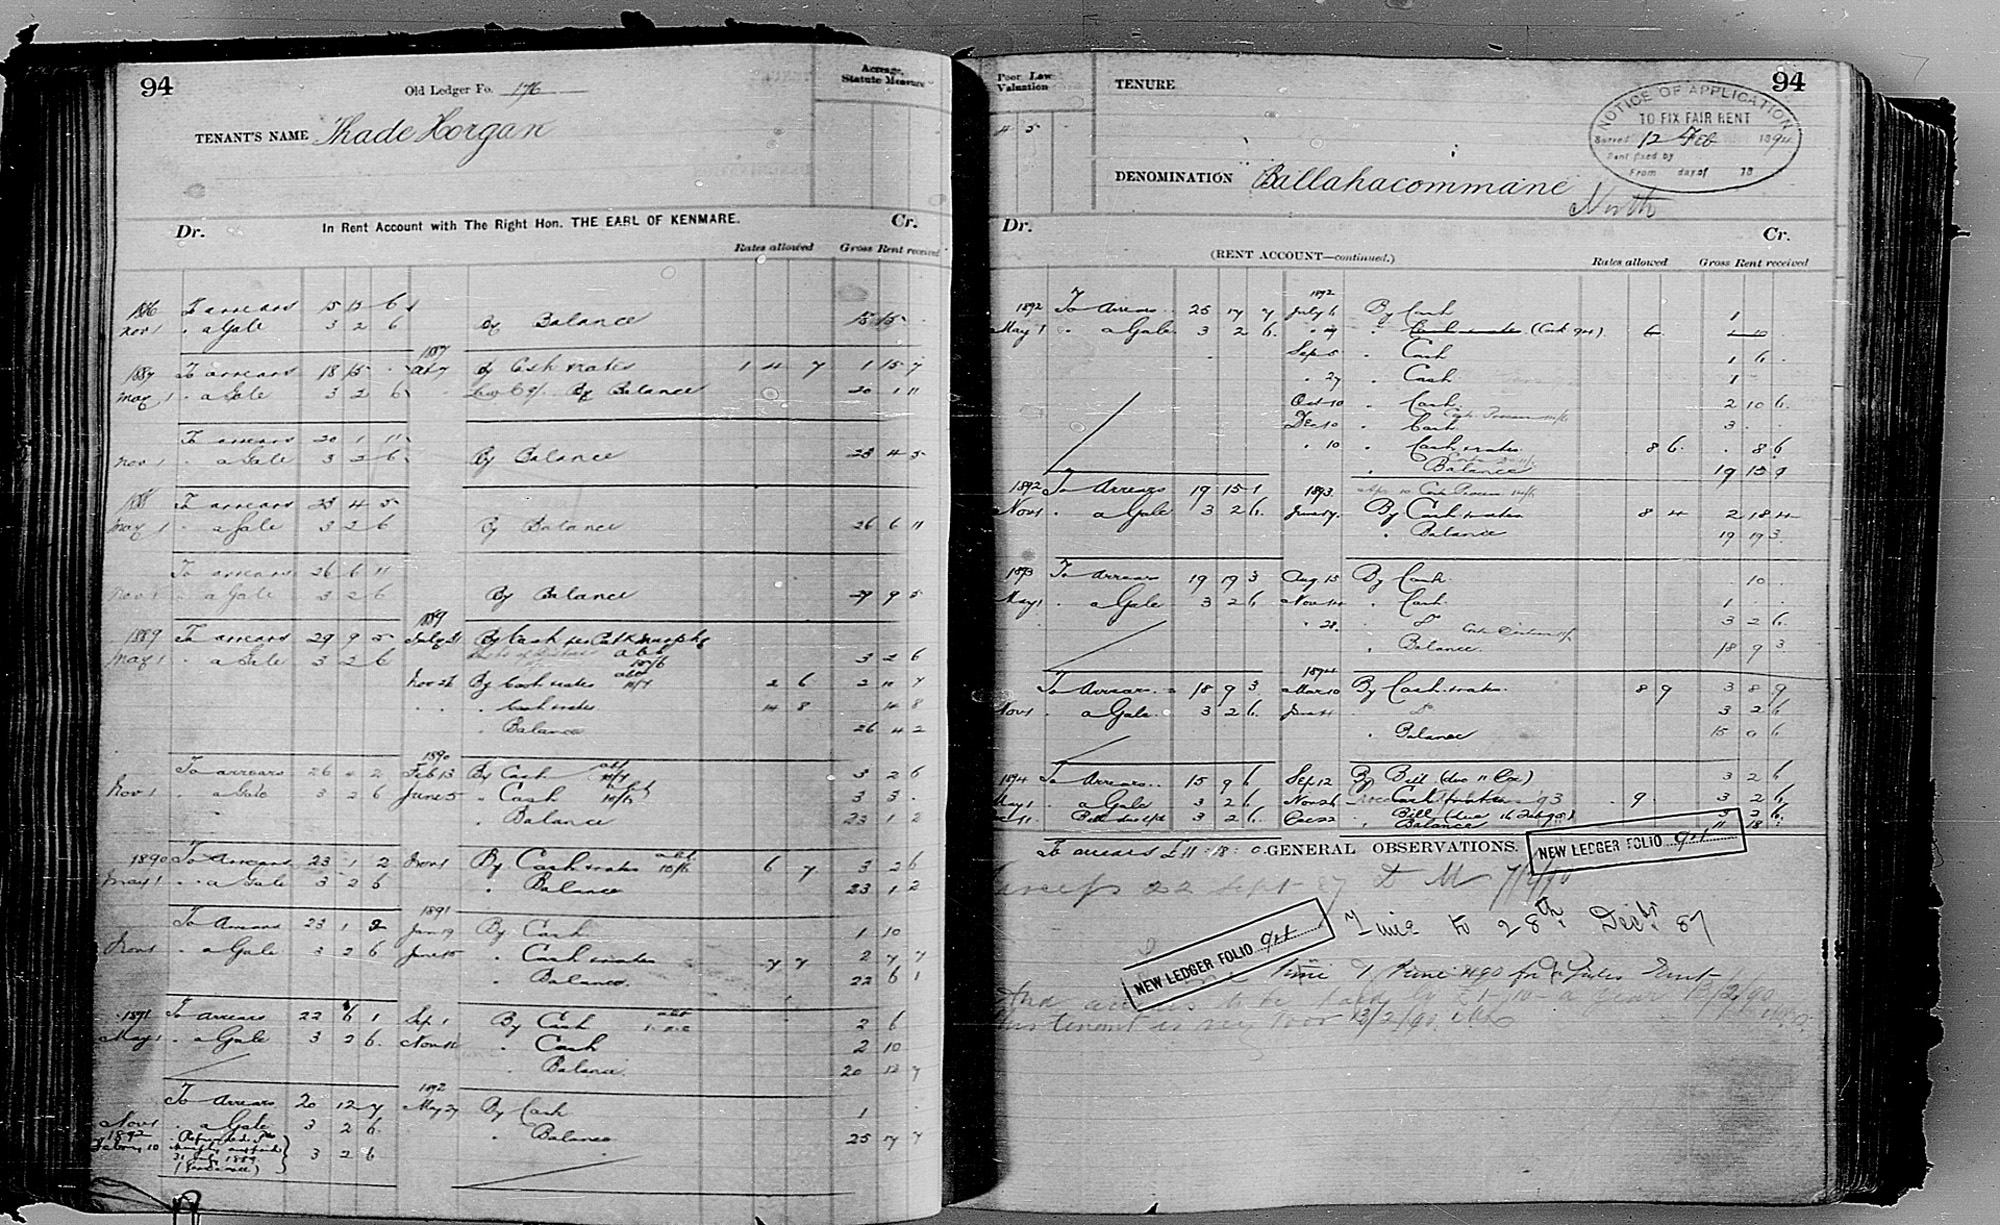 94
Old Ledger Fo. 176
Acreage,
Statute Measure
TENANT'S NAME Thade Horgan
In Rent Account with The Right Hon. THE EARL OF KENMARE.
Dr. Cr.
Rates allowed Gross Rent received
1886 To arrears 15 12 6
Nov 1 " a Gale 3 2 6 By Balance 18 15
1887
1887 To arrears 18 15 By Cash rates 1 4 7 1 15 7
May 1 " a Gale 3 2 6 By Balance 20 1 11
To arrears 20 1 11
Nov 1 " a Gale 3 2 6 By Balance 23 4 5
1888 To arrears 23 4 5
May 1 " a Gale 3 2 6 By Balance 26 6 11
To arrears 26 6 11
Nov 1 " a Gale 3 2 6 By Balance 29 9 5
1889
1889 To arrears 29 9 5 July 31 By Cash
May 1 " a Gale 3 2 6 3 2 6
Nov 26 By Cash rates 2 6 2 11 7
" Cash rates 14 8 14 8
" Balance 26 4 2
1890
To arrears 26 4 2 Feb 13 By Cash 3 2 6
Nov 1 " a Gale 3 2 6 June 5 " Cash 3 3
" Balance 23 1 2
1890 To Arrears 23 1 2 Nov 1 By Cash & rates 6 7 3 2 6
May 1 " a Gale 3 2 6 " Balance 23 1 2
1891
To Arrears 23 1 2 Jan 19 By Cash 1 10
Nov 1 " a Gale 3 2 6 June 15 " Cash & rates 7 7 2 7 7
" Balance 22 6 1
1891 To arrears 22 6 1 Sep 1 By Cash 2 6
May 1 " a Gale 3 2 6 Nov 10 " Cash 2 10
" Balance 20 12 7
1892
To Arrears 20 12 7 May 27 By Cash 1
Nov 1 " a Gale 3 2 6 " Balance 25 17 7
1892
3 2 6
Poor Law
Valuation
4 5
TENURE
94
NOTICE OF APPLICATION
TO FIX FAIR RENT
Served 12 Feb 1894
Rent fixed by
From day of 18
DENOMINATION Ballahacommane
North
Dr. Cr.
(RENT ACCOUNT—continued.)
Rates allowed Gross Rent received
1892
1892 To Arrears 25 17 7 July 6 By Cash 1
May 1 " a Gale 3 2 6
Sep 5 " Cash 1 6
" 27 " Cash 1
Oct 10 " Cash 2 10 6
Dec 10 " Cash 3
" 10 " Cash & rates 8 6 8 6
" Balance 19 15 9
1892 To Arrears 19 15 1 1893
Nov 1 " a Gale 3 2 6 June 7 By Cash & rates 8 4 2 18 4
" Balance 19 19 3
1893 To Arrears 19 19 3 Aug 15 By Cash 10
May 1 " a Gale 3 2 6 Nov 14 " Cash 1
" 28 " Do 3 2 6
" Balance 18 9 3
1894
To Arrears 18 9 3 Mar 10 By Cash & rates 8 9 3 8 9
Nov 1 " a Gale 3 2 6 June 11 " Do 3 2 6
" Balance 15 0 6
1894 To Arrears 15 9 6 Sep 12 By Bill (due 11 Oct) 3 2 6
May 1 " a Gale 3 2 6 Nov 26 93 9 3 2 6
3 2 6 Dec 22 " Bill 3 2 6
" Balance 11 18
To arrears £11 : 18 : 0. GENERAL OBSERVATIONS.
NEW LEDGER FOLIO 94
22 Sept 87
Time to 28th Decbr 87
NEW LEDGER FOLIO 94
Time
And arrears to be paid by £1-10- a year 13/2/90
This tenant is very poor 13/2/90